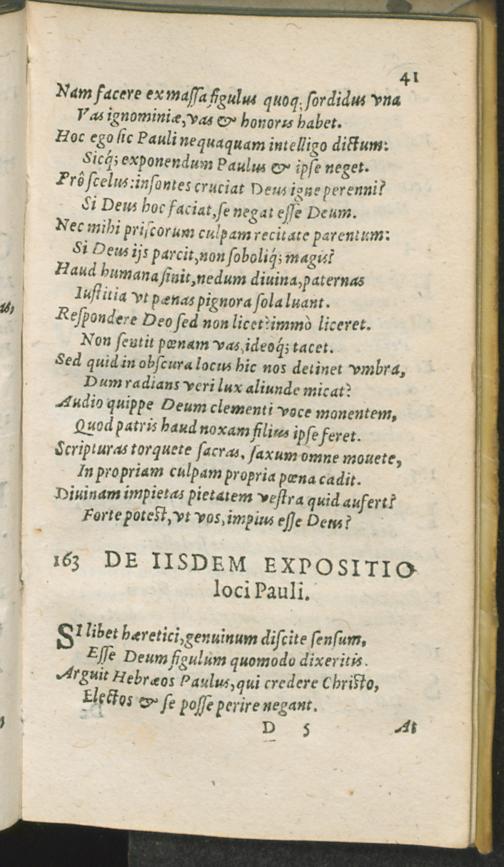 41
Nam facere ex massa figulus quoq; sordidus vna
Vas ignominiæ, vas & honoris habet.
Hoc ego sic Pauli nequaquam intelligo dictum:
Sicq́; exponendum Paulus & ipse neget.
Prô scelus: insontes cruciat Deus igne perenni?
Si Deus hoc faciat, se negat esse Deum.
Nec mihi priscorum culpam recitate parentum:
Si Deus ijs parcit, non soboliq́; magis?
Haud humana sinit, nedum diuina, paternas
Iustitia vt pœnas pignora sola luant.
Respondere Deo sed non licet? immò liceret.
Non sentit pœnam vas, ideoq́; tacet.
Sed quid in obscura locus hic nos detinet vmbra,
Dum radians veri lux aliunde micat?
Audio quippe Deum clementi voce monentem,
Quod patris haud noxam filius ipse feret.
Scripturas torquete sacras, saxum omne mouete,
In propriam culpam propria pœna cadit.
Diuinam impietas pietatem vestra quid aufert?
Forte potest, vt vos, impius esse Deus?
163 DE IISDEM EXPOSITIO
loci Pauli.
SI libet hæretici, genuinum discite sensum,
Esse Deum figulum quomodo dixeritis.
Arguit Hebræos Paulus, qui credere Christo,
Electos & se posse perire negant.
D 5 At